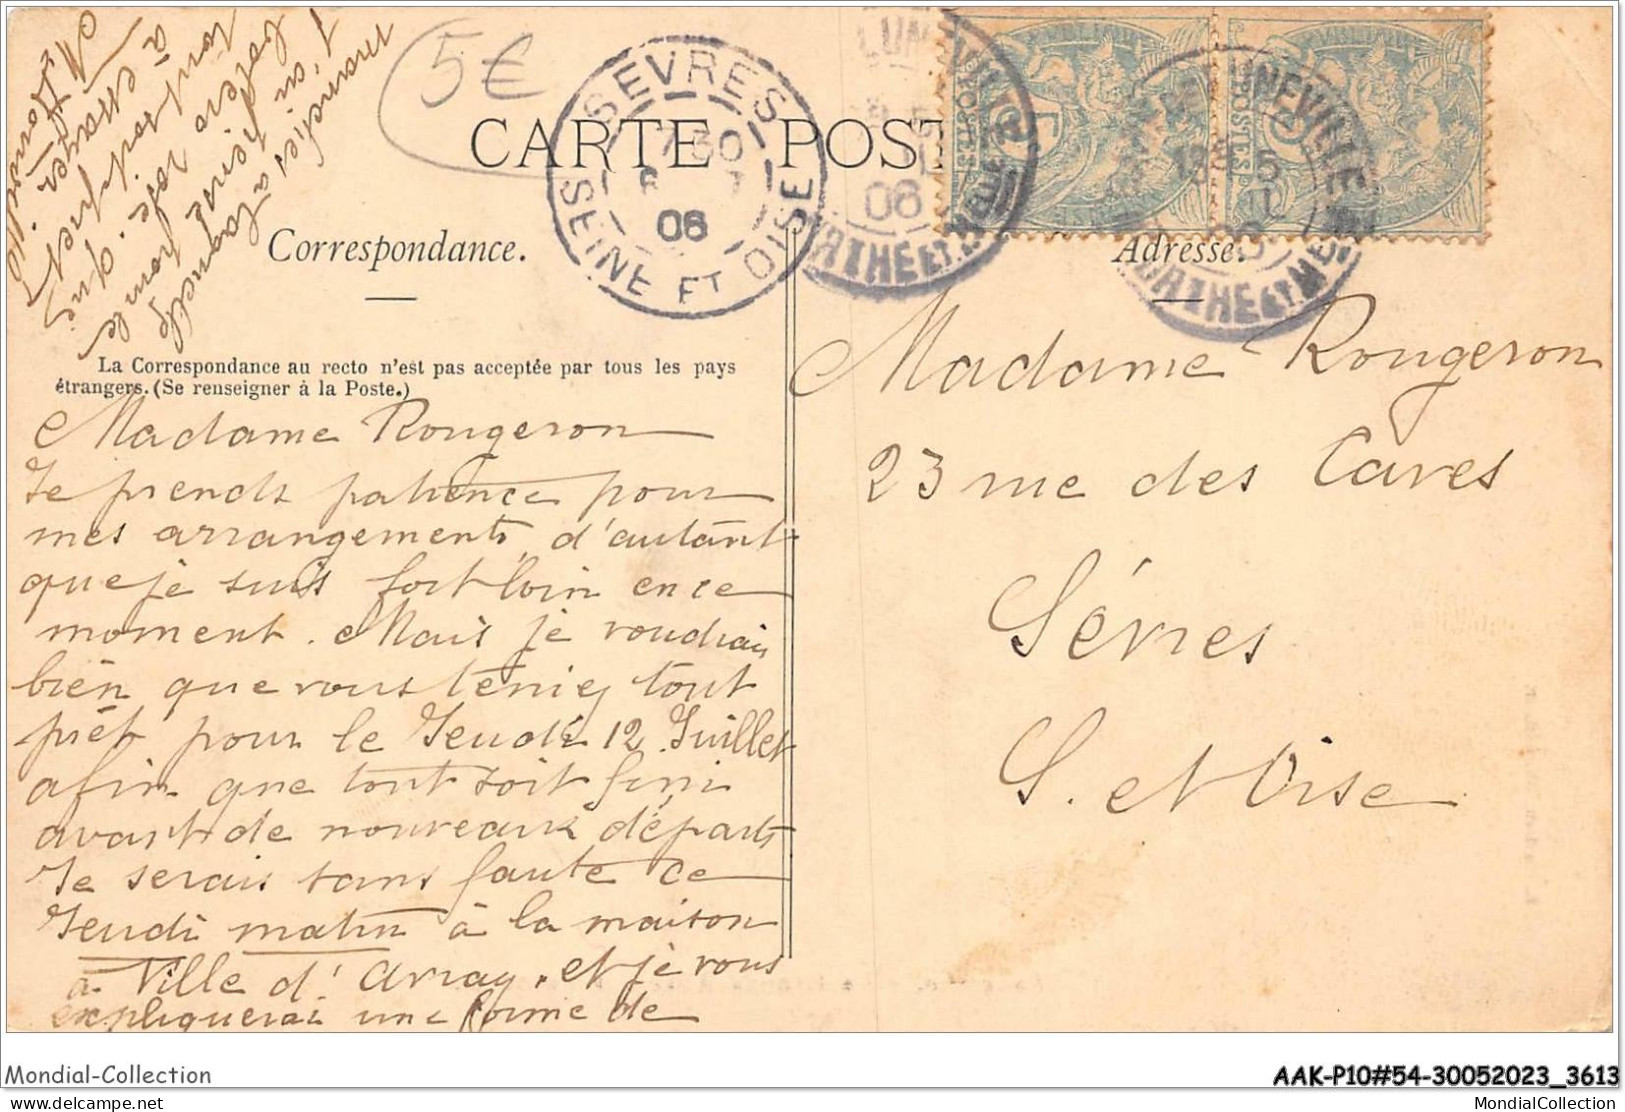 5€
CARTE POST
Correspondance.
Adresse.
La Correspondance au recto n'est pas acceptée par tous les pays
étrangers. (Se renseigner à la Poste.)
SEVRES
7 30
6
06
SEINE ET OISE
LUN
06
RTHE ET M
UNEVILLE
5
RTHE ET M
POSTES
POSTES
Madame Rougeron
23 rue des Caves
Sévres
S. et Oise
Madame Rougeron
Je prends patience pour
mes arrangements, d'autant
que je suis fort loin en ce
moment. Mais je voudrais
bien que vous teniez tout
prêt pour le Jeudi 12 Juillet
afin que tout soit fini
avant de nouveaux départs
Je serais sans faute ce
Jeudi matin à la maison
à Ville d'Avray, et je vous
expliquerai une forme de
manches à laquelle
j'ai pensé
boléro rose
tout soit prêt
à essayer
Mondial-Collection
AAK-P10#54-30052023_3613
delcampe.net
MondialCollection